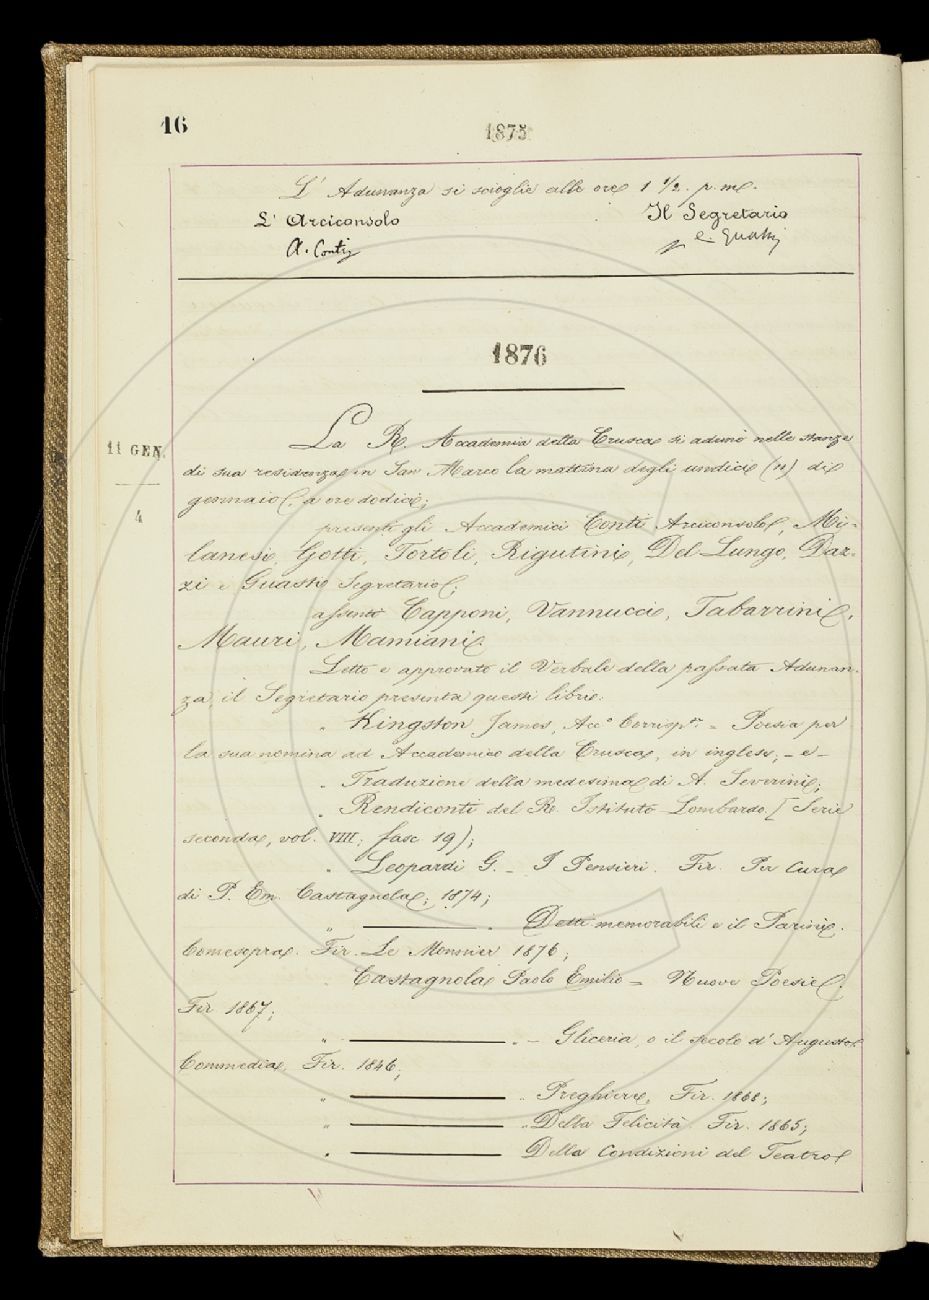 16
1875
L' Adunanza si scioglie alle ore 1 1/2. p. me.
L' Arciconsolo
Il Segretario
A. Conti
C. Guasti
1876
11 GEN.
4
La R. Accademia della Crusca si adunò nelle stanze
di sua residenza in San Marco la mattina degli undici (11) di
gennaio, a ore dodici;
presenti gli Accademici Conti Arciconsolo, Mi-
lanesi, Gotti, Tortoli, Rigutini, Del Lungo, Daz-
zi e Guasti Segretario;
assenti Capponi, Vannucci, Tabarrini,
Mauri, Mamiani.
Letto e approvato il Verbale della passata Adunan-
za, il Segretario presenta questi libri:
" Kingston James, Acc° Corrisp.te = Poesia per
la sua nomina ad Accademico della Crusca, in inglese, - e -
" Traduzione della medesima di A. Severini;
" Rendiconti del R. Istituto Lombardo, [Serie
seconda, vol. VIII; fasc. 19);
" Leopardi G. - I Pensieri. Fir. Per cura
di P. Em. Castagnola, 1874;
" Detti memorabili e il Parini.
Comesopra. Fir. Le Monnier 1876;
" Castagnola Paolo Emilio = Nuove Poesie,
Fir 1867;
" - Gliceria, o il secolo d'Augusto.
Commedia, Fir. 1846;
" Preghiere, Fir. 1868;
" Della Felicità. Fir. 1865;
" Della Condizioni del Teatro